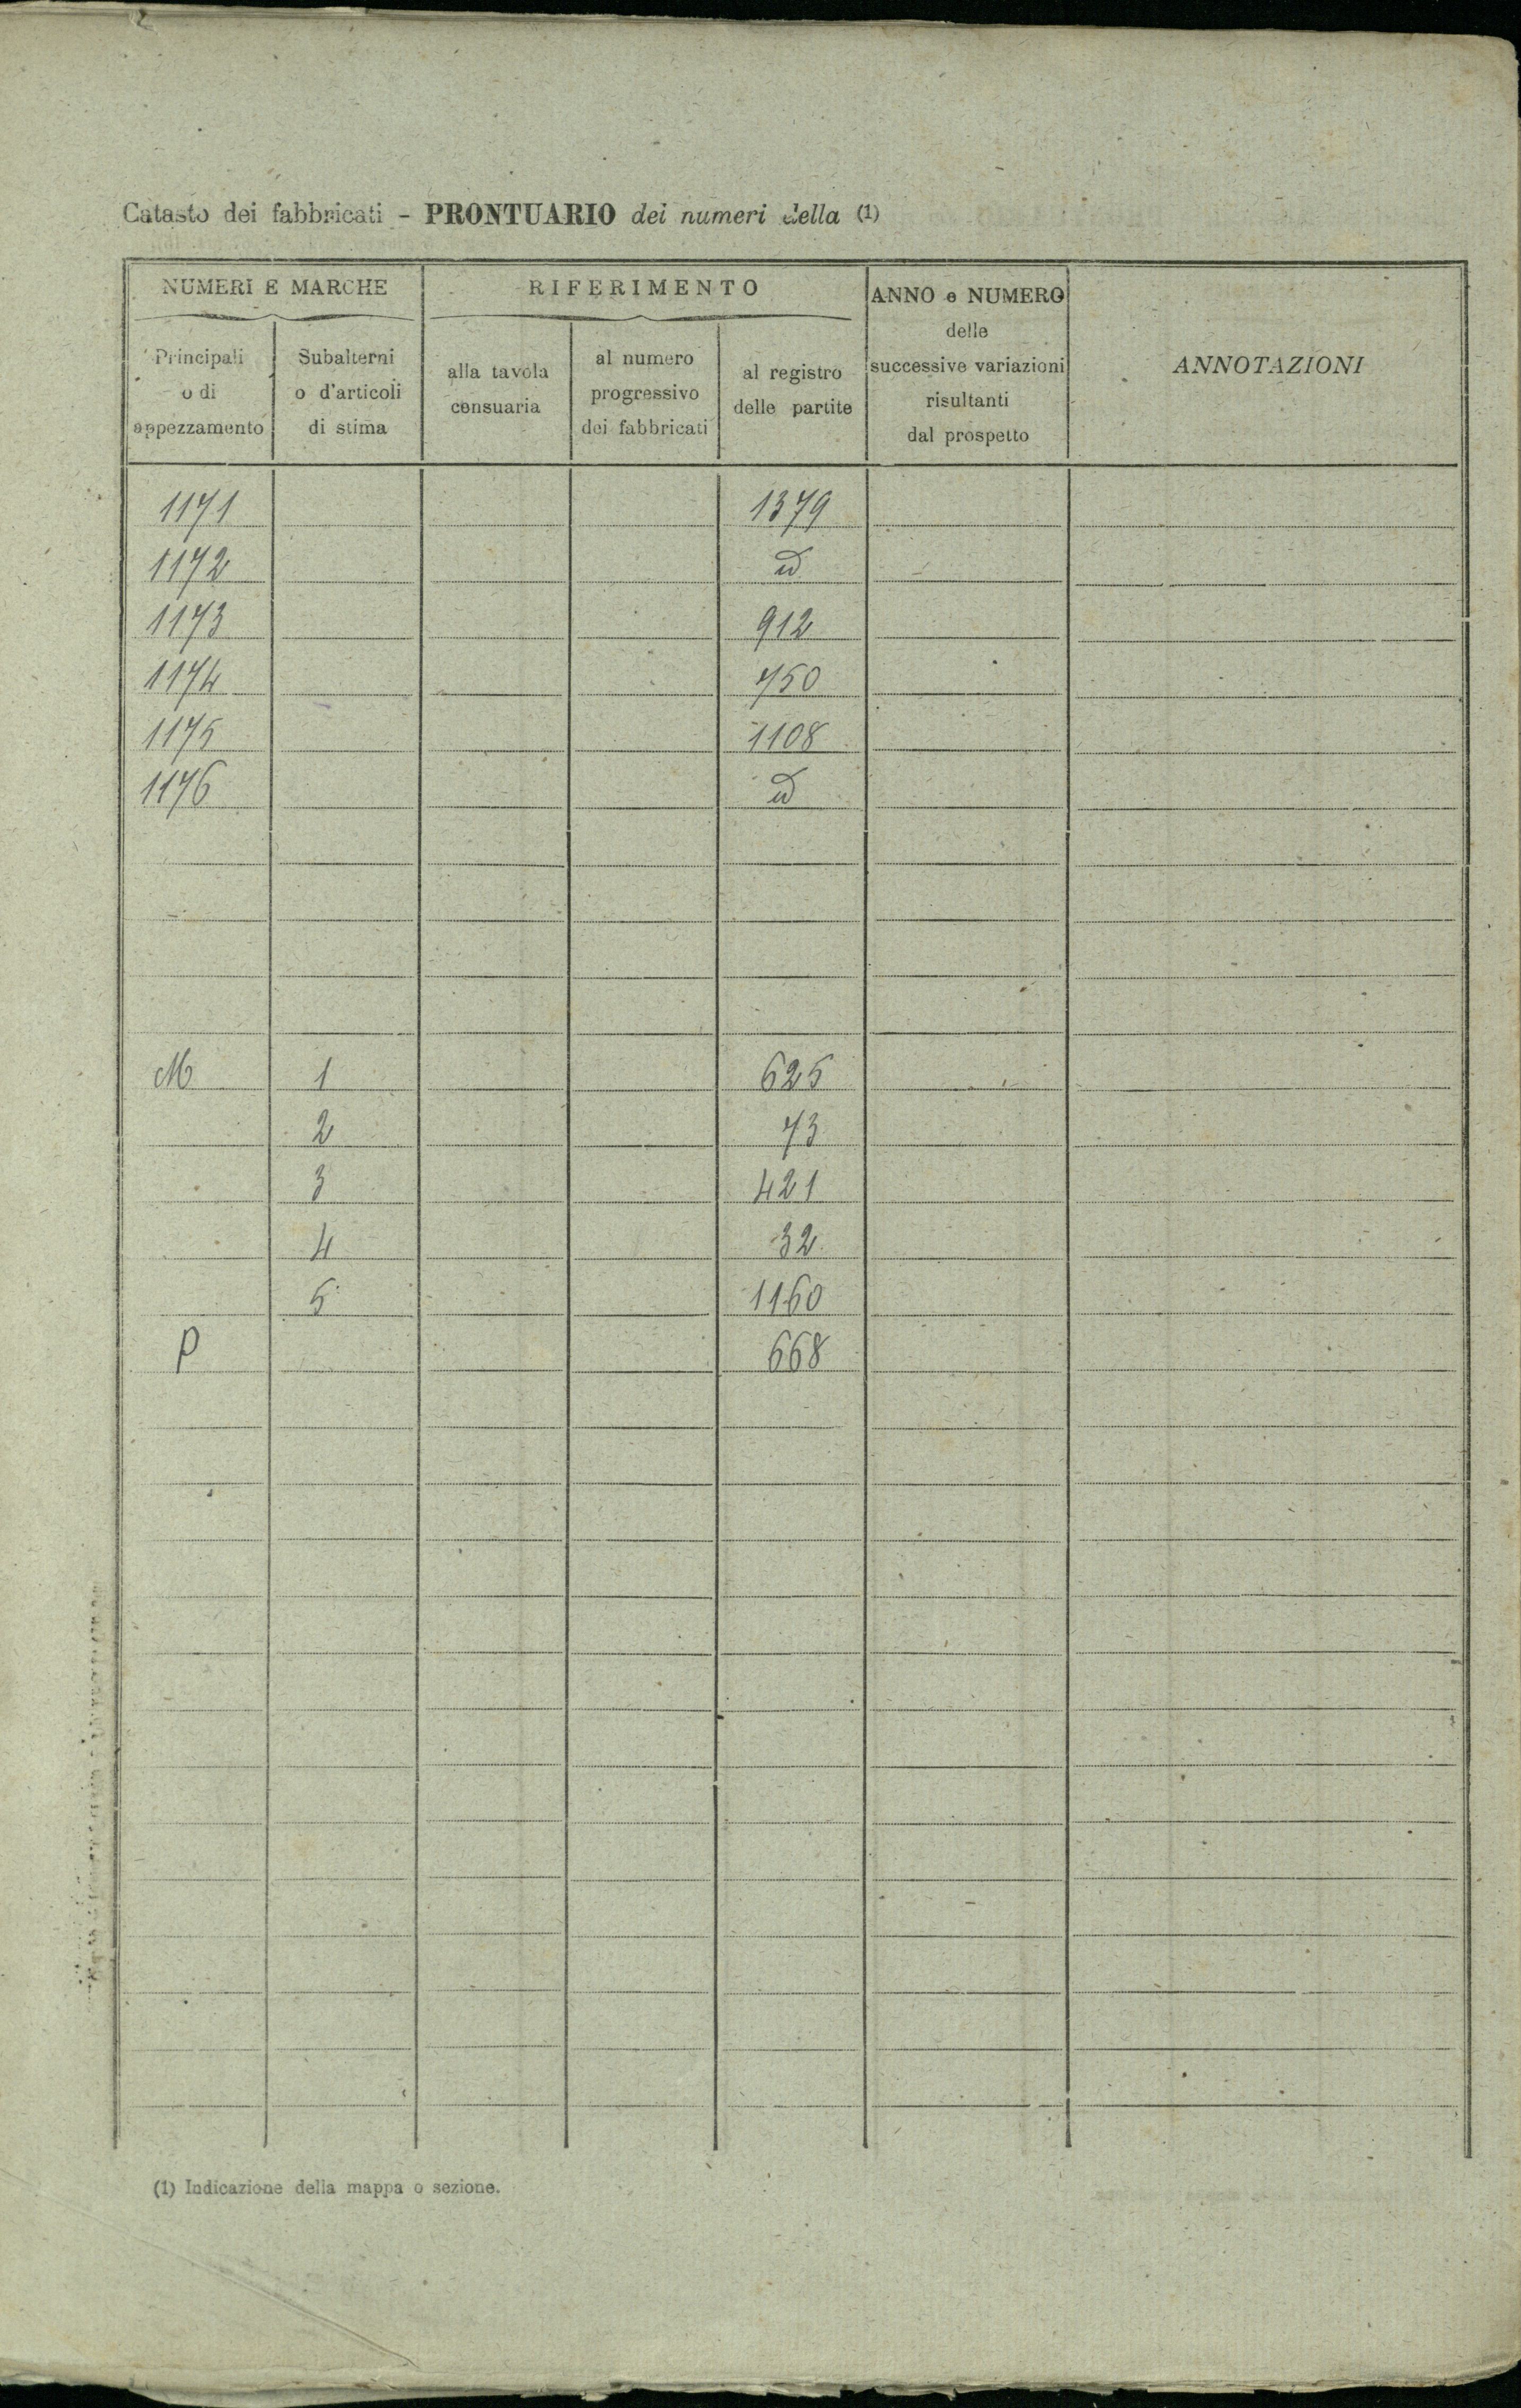 Catasto dei fabbricati - PRONTUARIO dei numeri della (1)
NUMERI E MARCHE
RIFERIMENTO
ANNO e NUMERO
delle
successive variazioni
risultanti
dal prospetto
ANNOTAZIONI
Principali
o di
appezzamento
Subalterni
o d'articoli
di stima
alla tavola
censuaria
al numero
progressivo
dei fabbricati
al registro
delle partite
1171 1379
1172 id
1173 912
1174 750
1175 1108
1176 id
M 1 625
2 73
3 421
4 32
5 1160
P 668
(1) Indicazione della mappa o sezione.